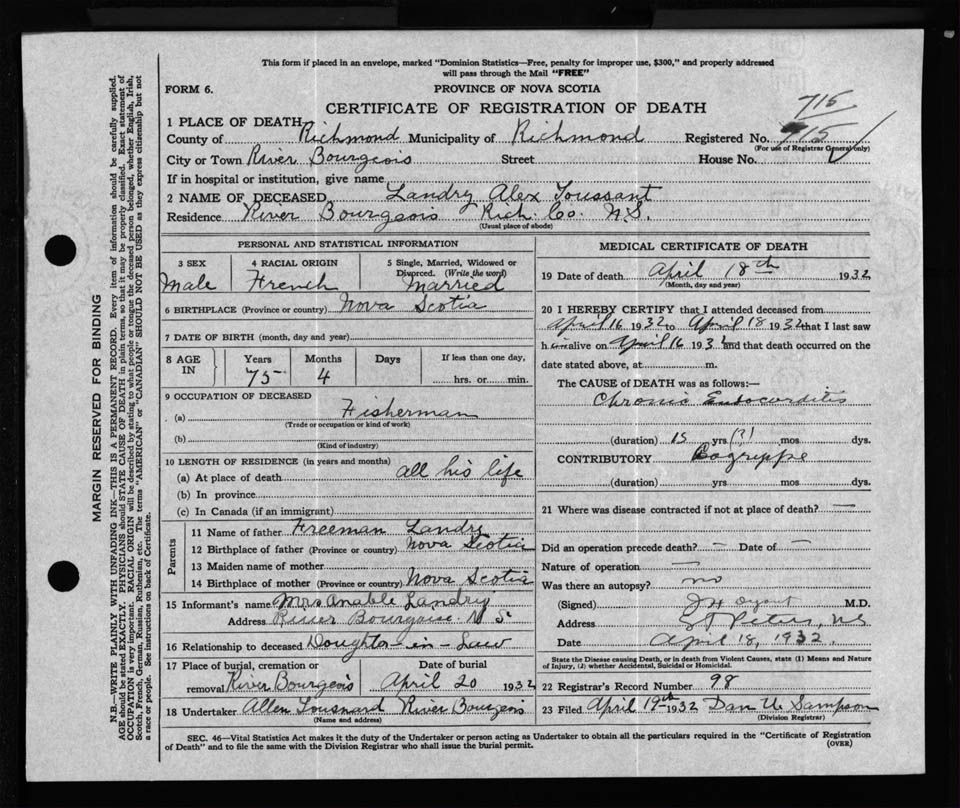 This form if placed in an envelope, marked "Dominion Statistics—Free, penalty for improper use, $300," and properly addressed
will pass through the Mail "FREE"
FORM 6.
PROVINCE OF NOVA SCOTIA
CERTIFICATE OF REGISTRATION OF DEATH
715
1 PLACE OF DEATH
County of Richmond Municipality of Richmond Registered No. 715
(For use of Registrar General only)
City or Town River Bourgeois Street House No.
If in hospital or institution, give name
2 NAME OF DECEASED Landry Alex Toussant
Residence River Bourgeois Rich. Co. N.S.
(Usual place of abode)
PERSONAL AND STATISTICAL INFORMATION
3 SEX 4 RACIAL ORIGIN 5 Single, Married, Widowed or
Divorced. (Write the word)
Male French Married
6 BIRTHPLACE (Province or country) Nova Scotia
7 DATE OF BIRTH (month, day and year)
8 AGE IN Years Months Days If less than one day,
75 4 hrs. or min.
9 OCCUPATION OF DECEASED
(a) Fisherman
(Trade or occupation or kind of work)
(b)
(Kind of industry)
10 LENGTH OF RESIDENCE (in years and months)
(a) At place of death all his life
(b) In province
(c) In Canada (if an immigrant)
Parents
11 Name of father Freeman Landry
12 Birthplace of father (Province or country) Nova Scotia
13 Maiden name of mother
14 Birthplace of mother (Province or country) Nova Scotia
15 Informant's name Mrs Anable Landry
Address River Bourgoise N S
16 Relationship to deceased Doughter-in-Law
17 Place of burial, cremation or Date of burial
removal River Bourgeois April 20 1932
18 Undertaker Allen River Bourgeois
(Name and address)
MEDICAL CERTIFICATE OF DEATH
19 Date of death April 18th 1932
(Month, day and year)
20 I HEREBY CERTIFY that I attended deceased from
April 16 1932 to April 18 1932 that I last saw
him alive on April 16 1932 and that death occurred on the
date stated above, at m.
The CAUSE of DEATH was as follows:—
Chronic Endocarditis
(duration) 15 yrs (?) mos dys.
CONTRIBUTORY
(duration) yrs. mos. dys.
21 Where was disease contracted if not at place of death? —
Did an operation precede death? — Date of —
Nature of operation —
Was there an autopsy? no
(Signed) M.D.
Address St Peters, NS
Date April 18, 1932.
State the Disease causing Death, or in death from Violent Causes, state (1) Means and Nature
of Injury, (2) whether Accidental, Suicidal or Homicidal.
22 Registrar's Record Number 98
23 Filed April 19th 1932 Dan U. Sampson
(Division Registrar)
SEC. 46—Vital Statistics Act makes it the duty of the Undertaker or person acting as Undertaker to obtain all the particulars required in the "Certificate of Registration
of Death" and to file the same with the Division Registrar who shall issue the burial permit.
(OVER)
MARGIN RESERVED FOR BINDING
N.B.—WRITE PLAINLY WITH UNFADING INK—THIS IS A PERMANENT RECORD. Every item of information should be carefully supplied.
AGE should be stated EXACTLY. PHYSICIANS should STATE CAUSE OF DEATH in plain terms, so that it may be properly classified. Exact statement of
OCCUPATION is very important. RACIAL ORIGIN will be described by stating to what people or tongue the deceased person belonged, whether English, Irish,
Scotch, French, German, Russian, Ruthenian, etc. The terms "AMERICAN" or "CANADIAN" SHOULD NOT BE USED as they express citizenship but not
a race or people. See instructions on back of Certificate.